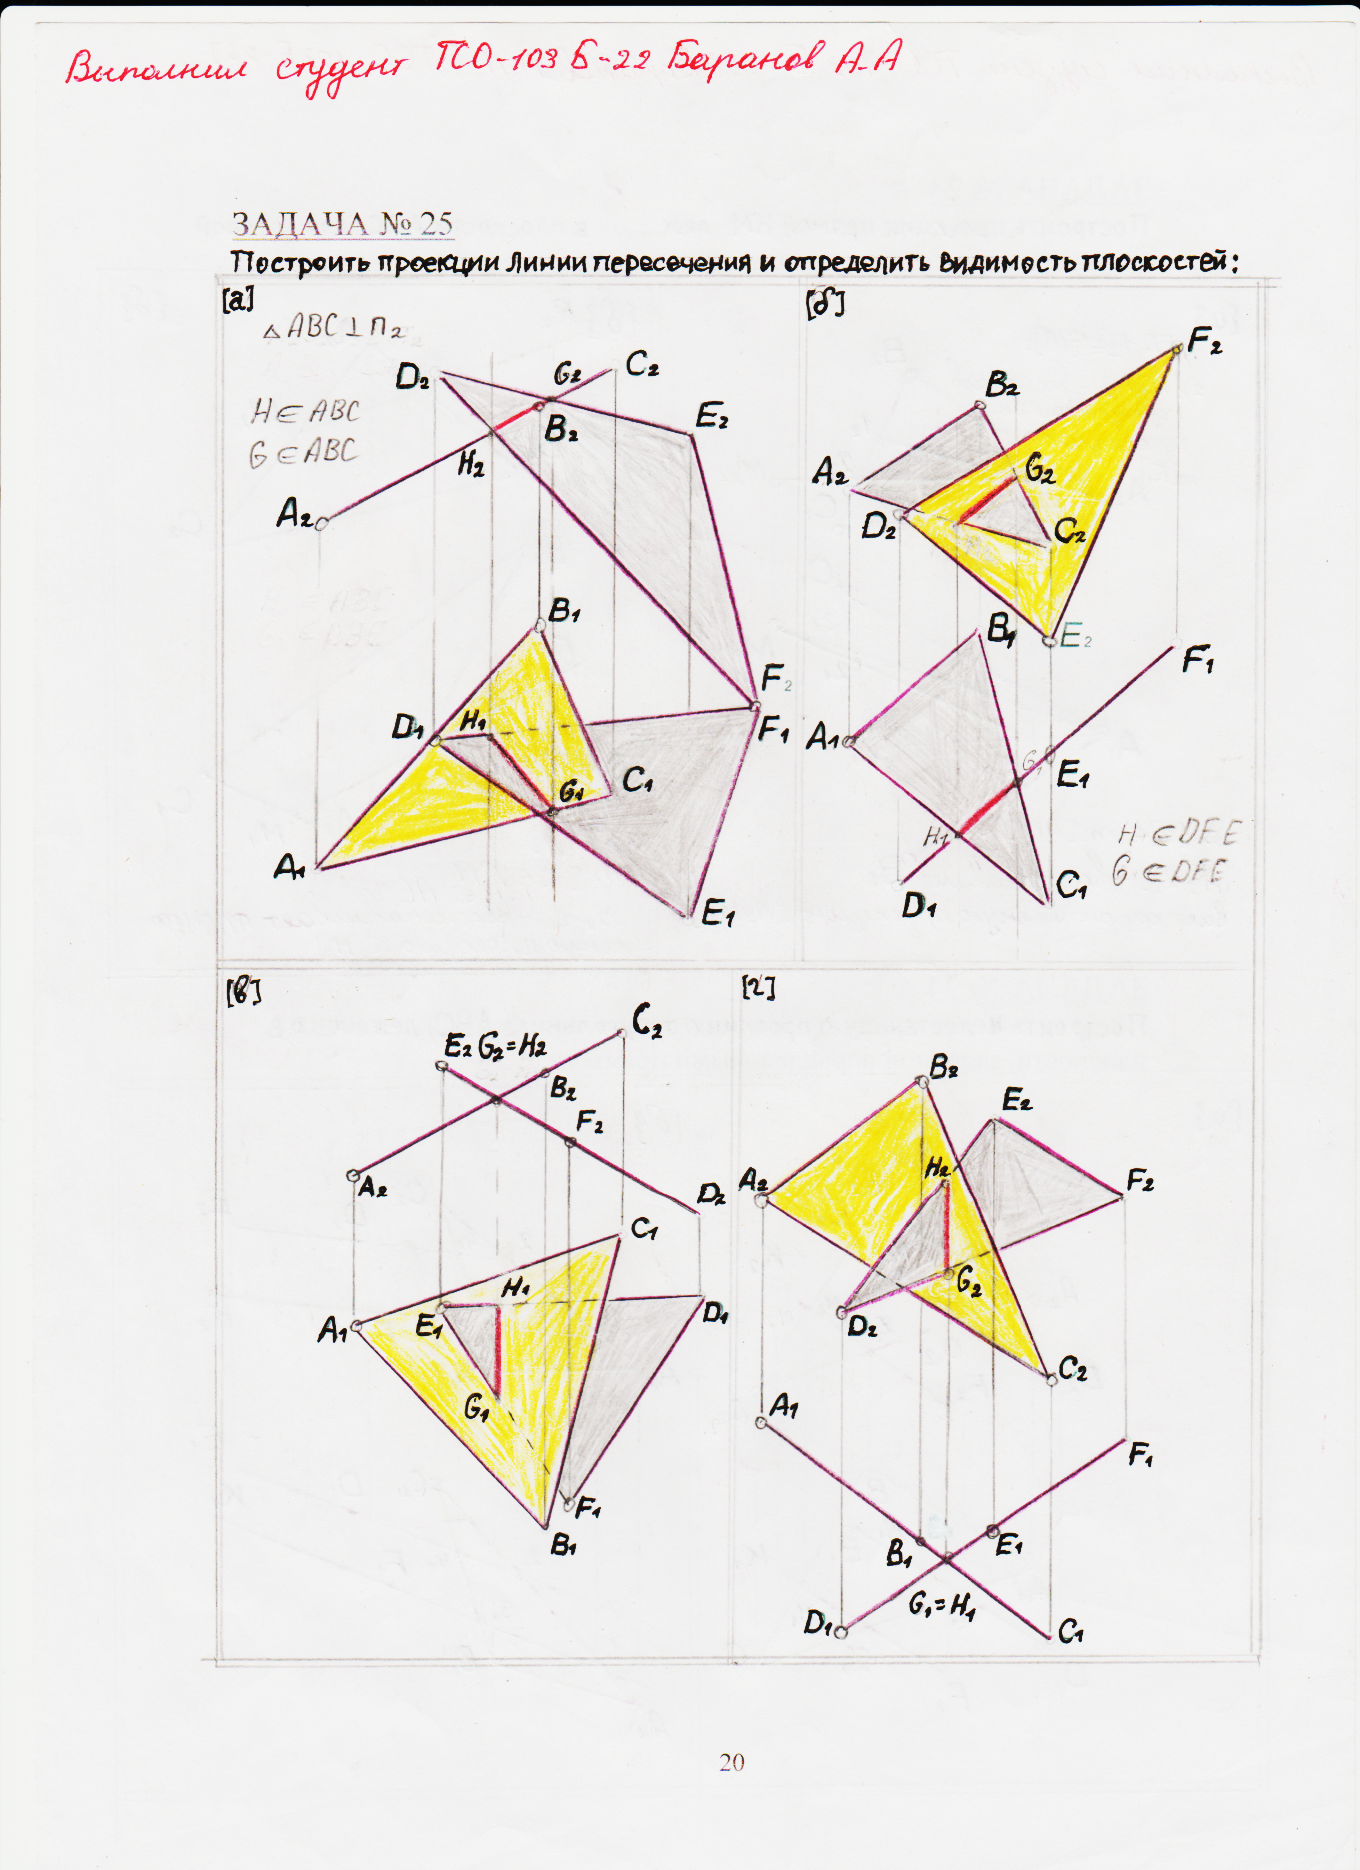 Выполнил студент ПСО-103 Б-22 Баранов А.А
ЗАДАЧА № 25
Построить проекции линии пересечения и определить видимость плоскостей:
[а]
△ ABC ⊥ П₂
H ∈ ABC
G ∈ ABC
D₂
G₂
C₂
B₂
E₂
H₂
A₂
B₁
F₂
D₁
H₁
F₁
G₁
C₁
A₁
E₁
[б]
F₂
B₂
A₂
G₂
D₂
C₂
B₁
E₂
F₁
A₁
G₁
E₁
H₁
H ∈ DFE
G ∈ DFE
D₁
C₁
[в]
C₂
E₂ G₂=H₂
B₂
F₂
A₂
D₂
C₁
H₁
A₁
E₁
D₁
G₁
F₁
B₁
[г]
B₂
E₂
H₂
A₂
F₂
G₂
D₂
C₂
A₁
F₁
B₁
E₁
G₁=H₁
D₁
C₁
20